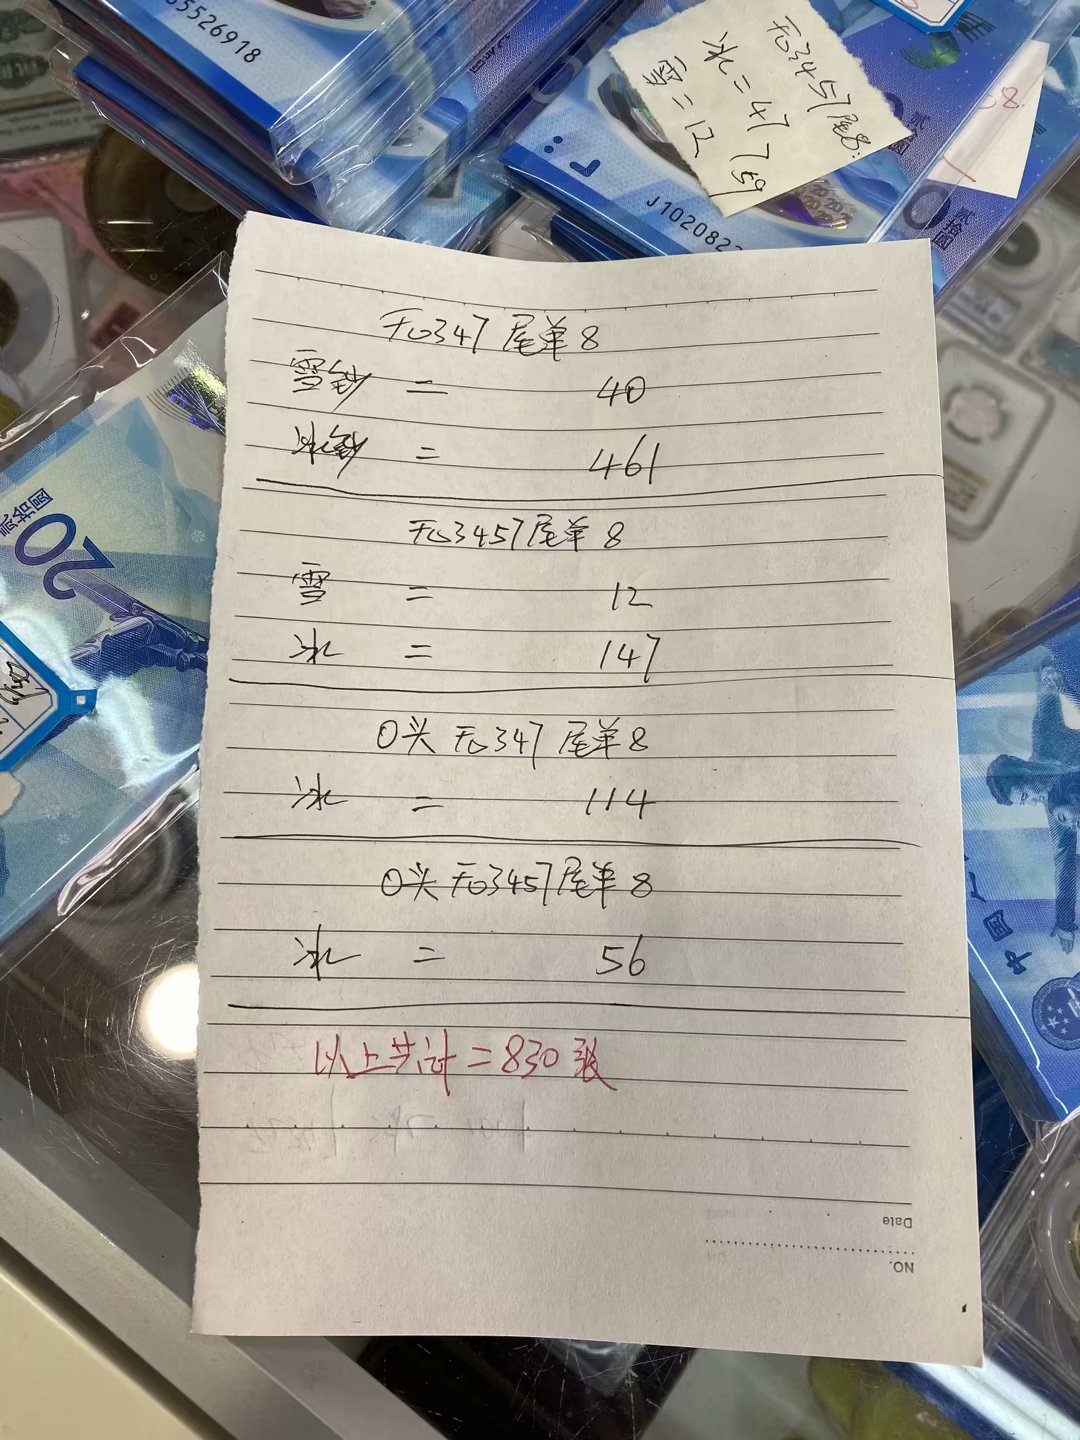 35526918
无3457尾8:
冰=47
雪=12
J102082
贰拾圆
20
贰拾圆
无347 尾单8
雪钞 = 40
冰钞 = 461
无3457尾单8
雪 = 12
冰 = 147
0头 无347 尾单8
冰 = 114
0头 无3457尾单8
冰 = 56
以上共计=830张
Date
NO.
中国人